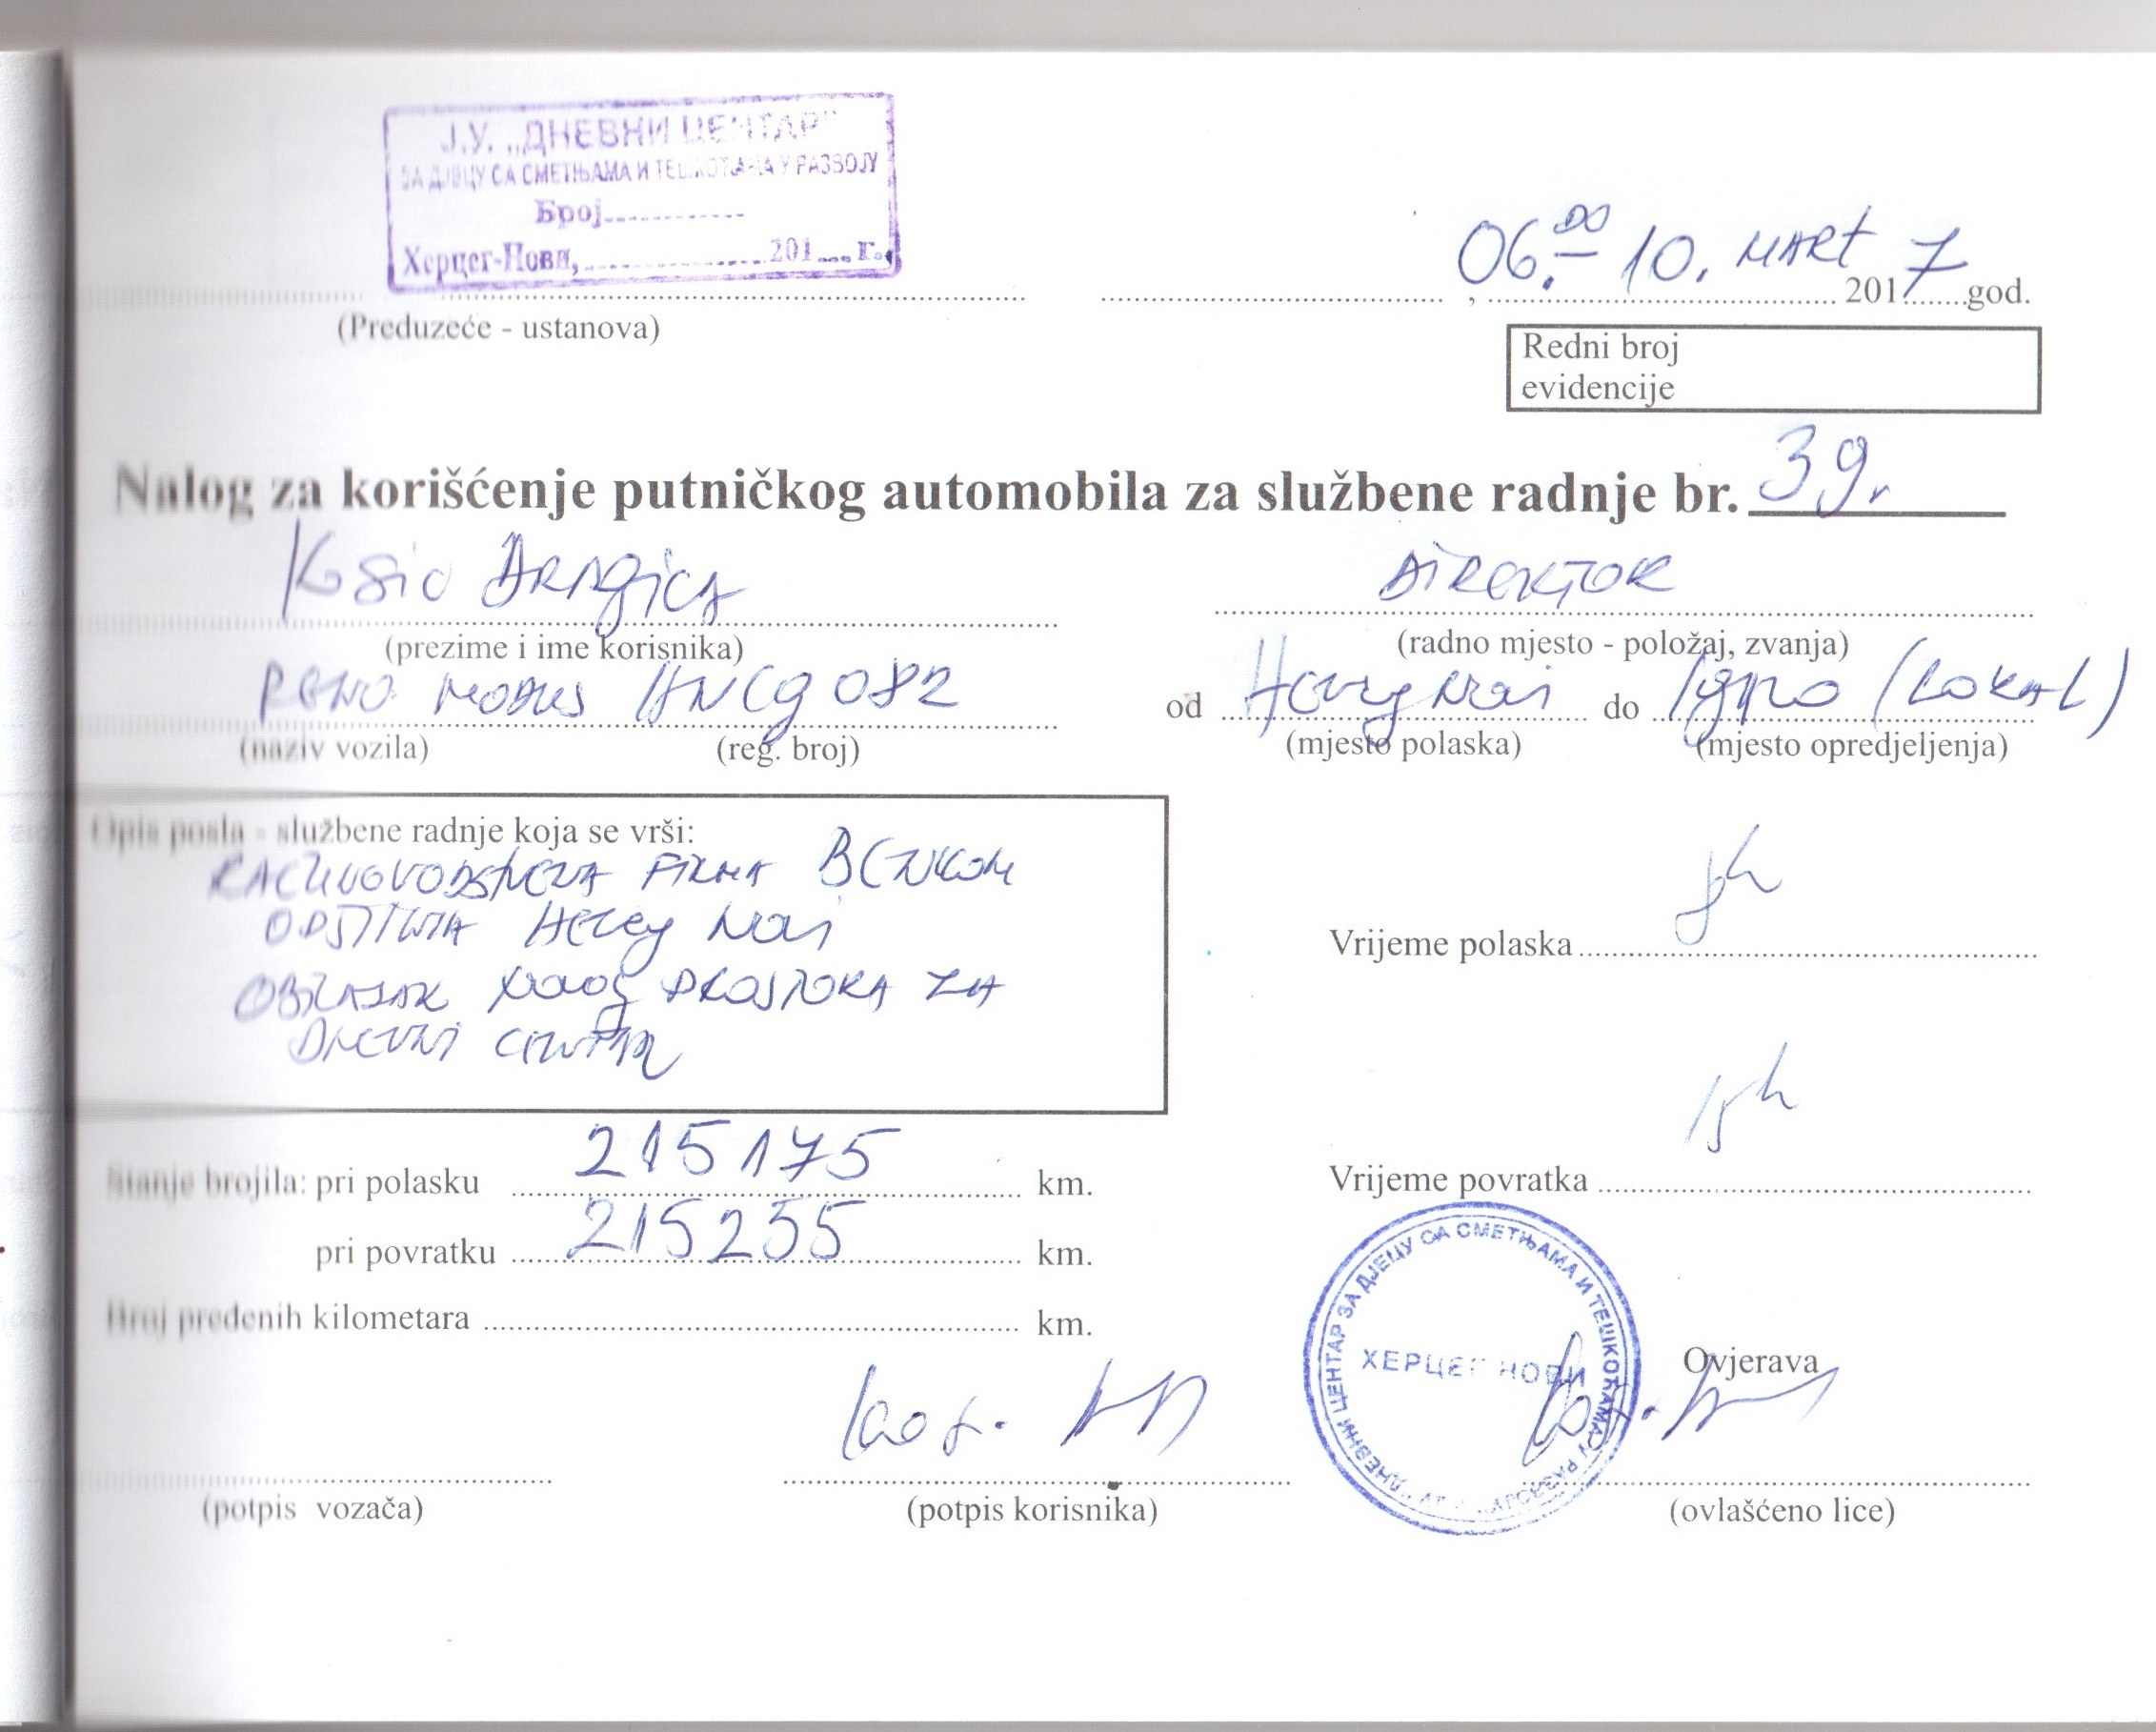 Ј.У. „ДНЕВНИ ЦЕНТАР"
ЗА ДЈЕЦУ СА СМЕТЊАМА И ТЕШКОЋАМА У РАЗВОЈУ
Број.............
Херцег-Нови,....................201.....г.
06. DO 10. MART 2017 god.
(Preduzeće - ustanova)
Redni broj
evidencije
Nalog za korišćenje putničkog automobila za službene radnje br. 39.
Kosić Dragica DIREKTOR
(prezime i ime korisnika) (radno mjesto - položaj, zvanja)
RENO MODUS HNCG 082 od Herceg Novi do Igalo (LOKAL)
(naziv vozila) (reg. broj) (mjesto polaska) (mjesto opredjeljenja)
Opis posla - službene radnje koja se vrši:
FIRMA
OPŠTINA Herceg Novi
PROSTORA ZA
DNEVNI CENTAR
Vrijeme polaska 8h
Stanje brojila: pri polasku 215175 km.
Vrijeme povratka 15h
pri povratku 215235 km.
Broj pređenih kilometara km.
ДНЕВНИ ЦЕНТАР ЗА ДЈЕЦУ СА СМЕТЊАМА И ТЕШКОЋАМА У РАЗВОЈУ
ХЕРЦЕГ НОВИ
Ovjerava
(potpis vozača) (potpis korisnika) (ovlašćeno lice)